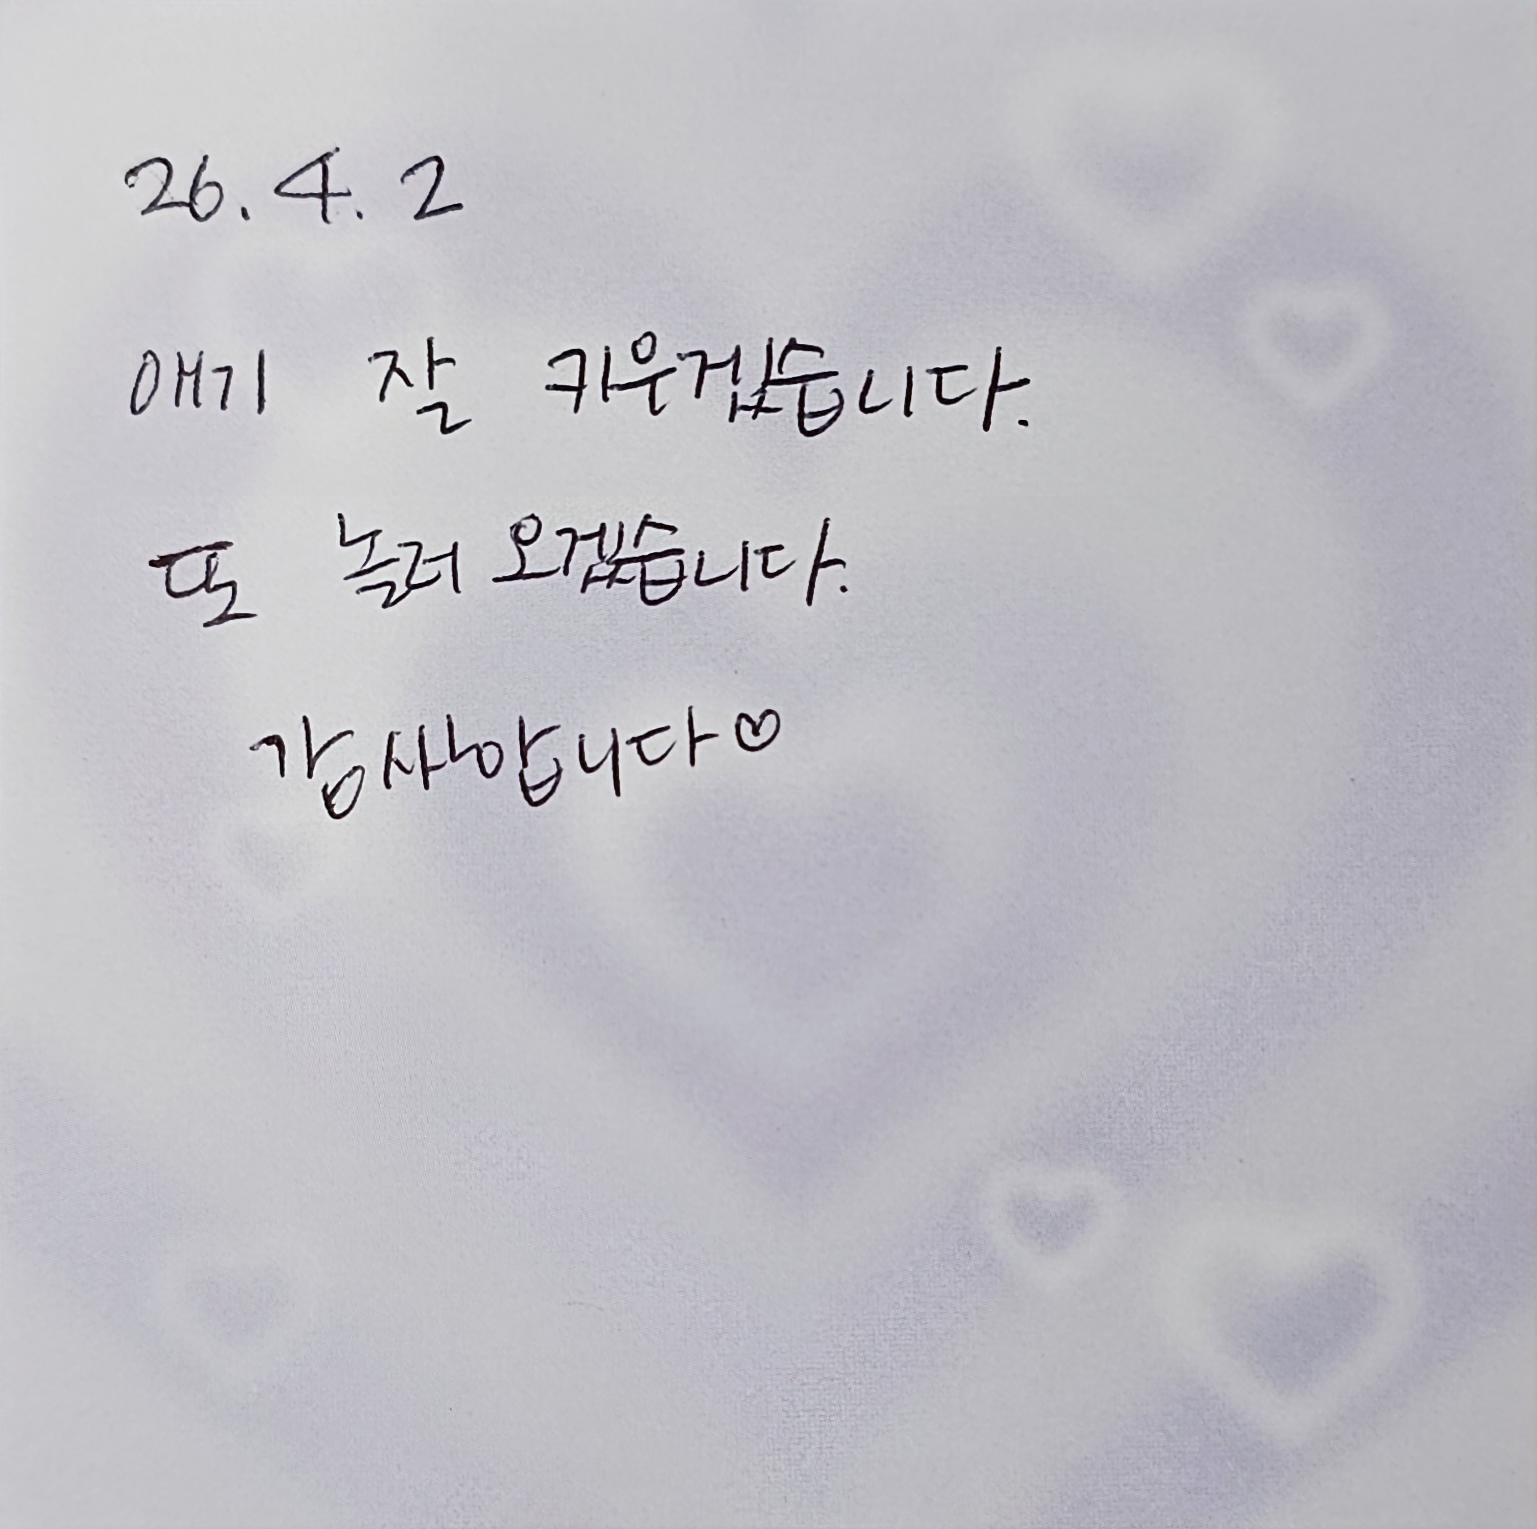 26.4.2
애기 잘 키우겠습니다.
또 놀러 오겠습니다.
감사합니다♡